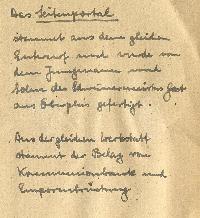 Das Seitenportal
stammt aus dem gleichen
Entwurf und wurde von
dem Jungmann und
Sohn des Schreinermeisters Gast
aus Oberplais gefertigt.
Aus der gleichen Werkstatt
stammt der Belag von
Kommunionbank und
Emporenbrüstung